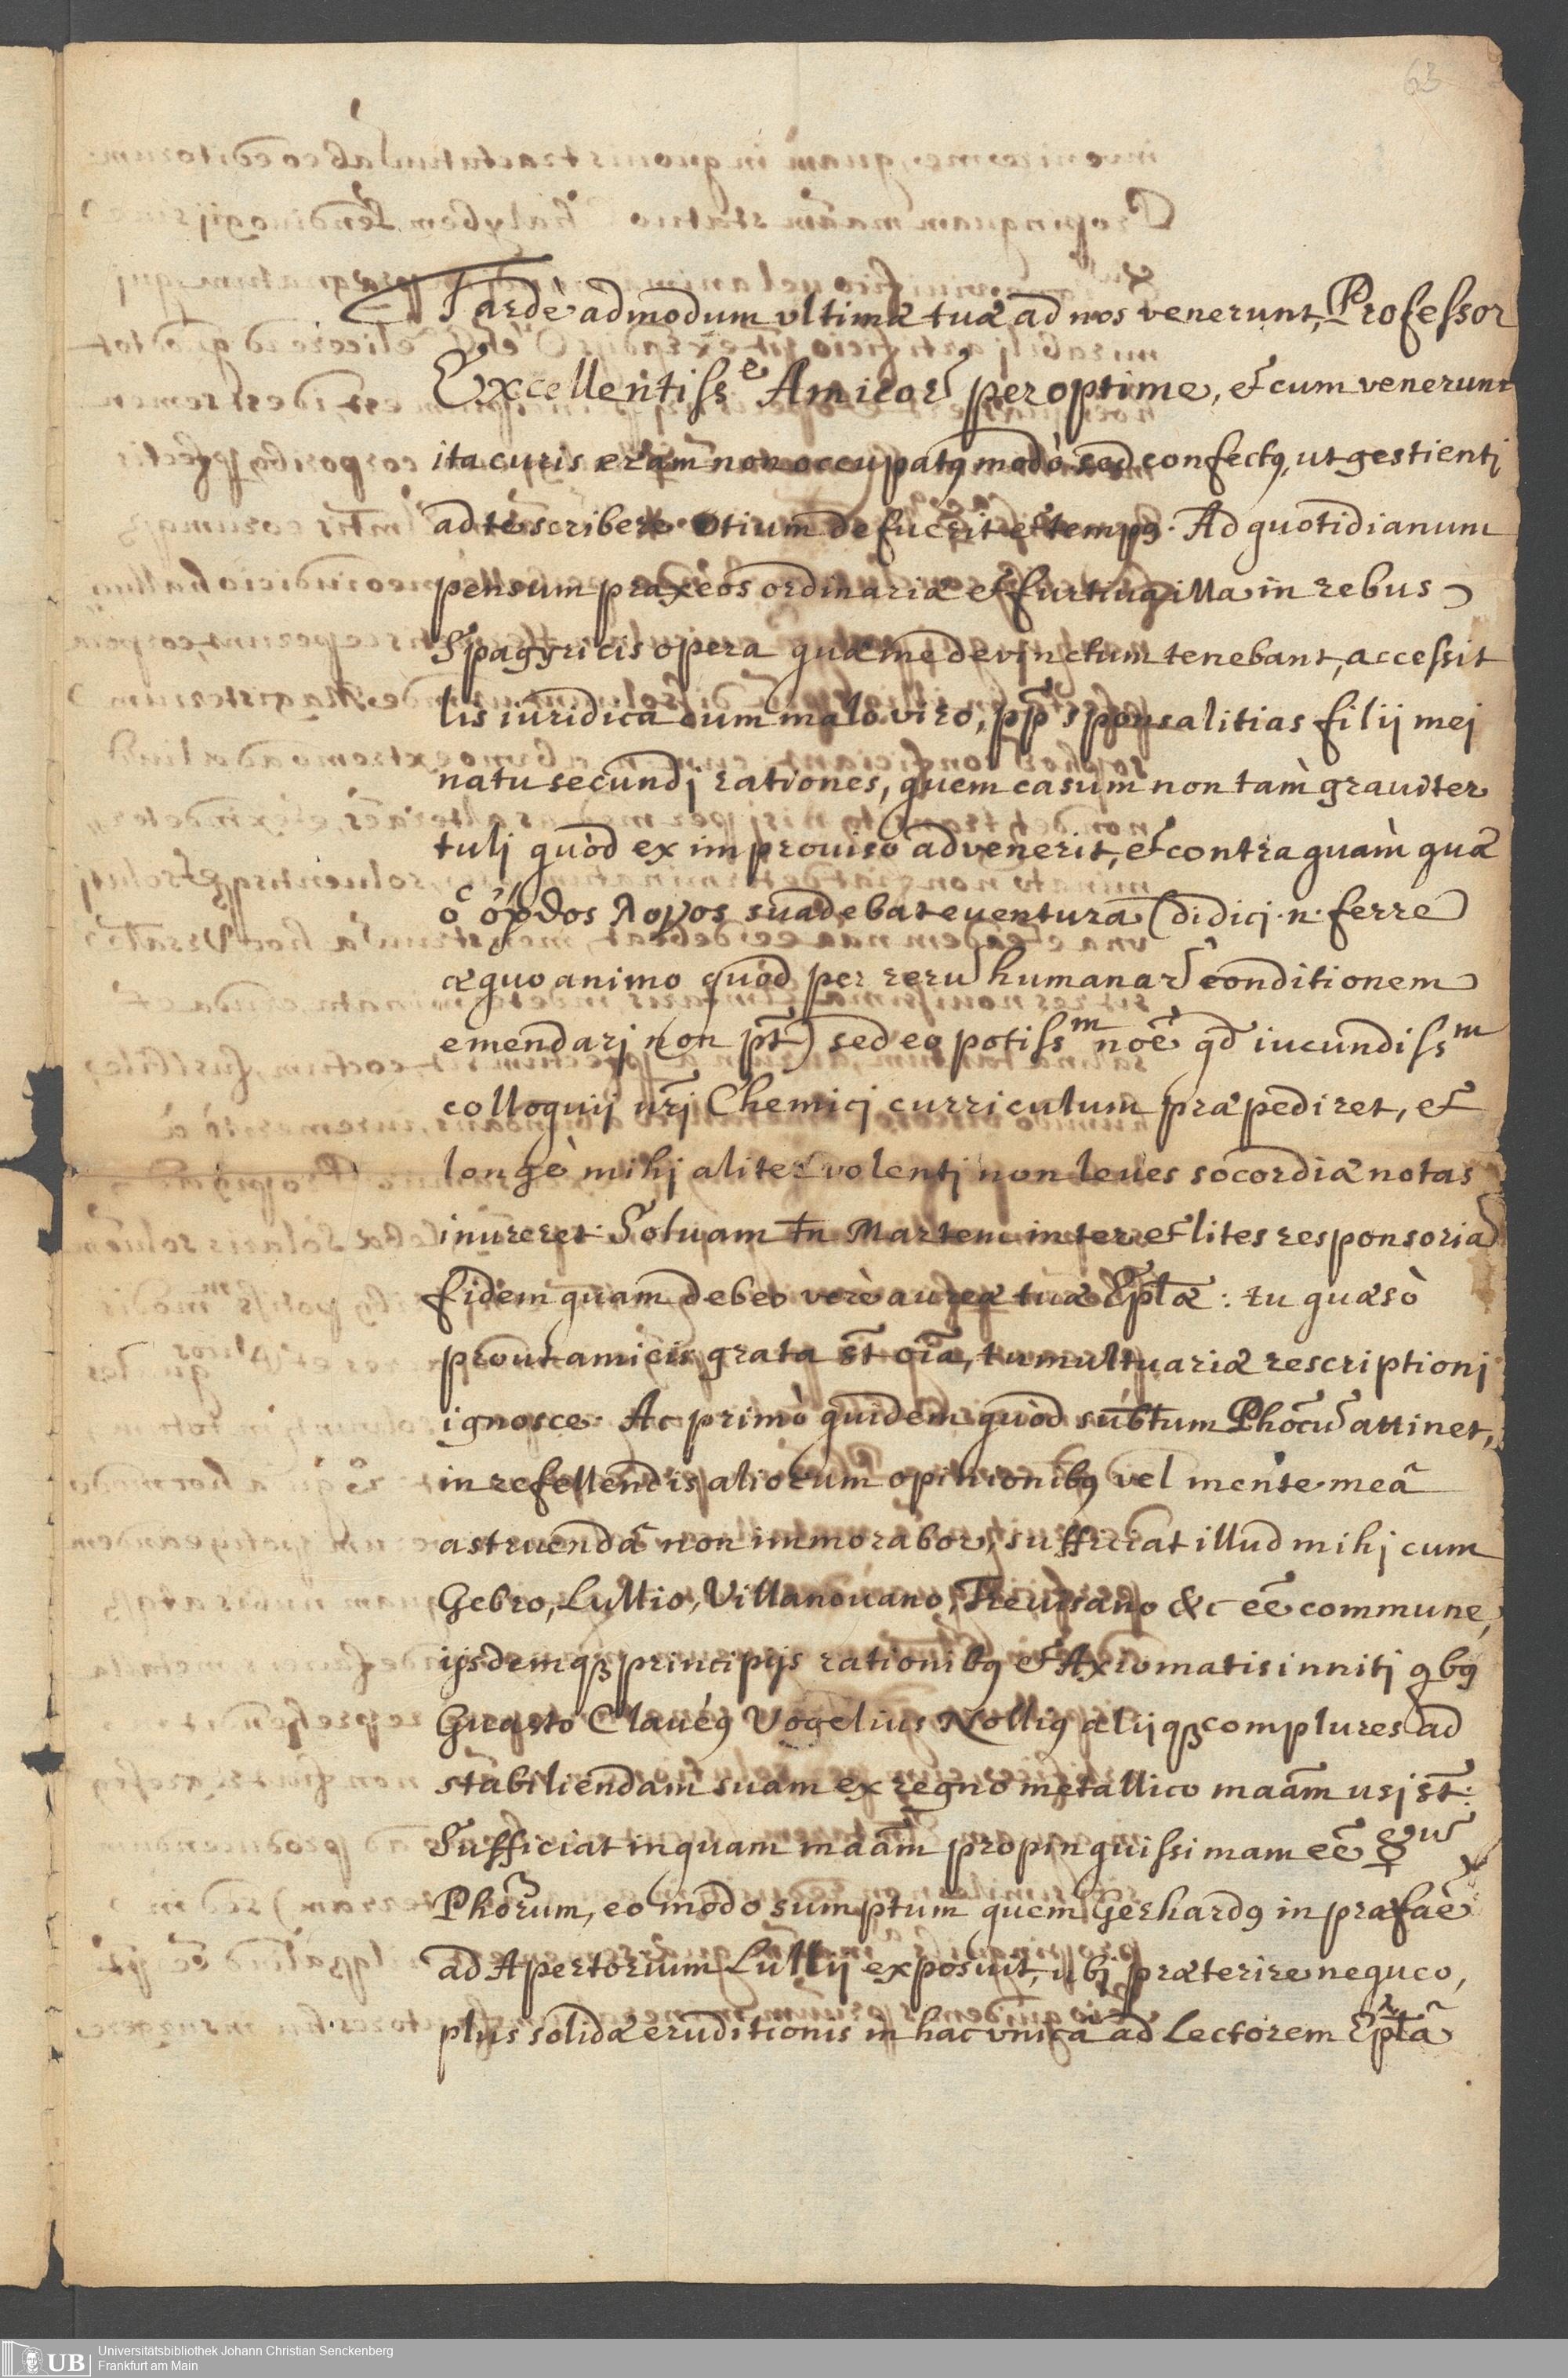 63
Tardè admodum vltimæ tuæ ad nos venerunt, Professor
Excellentiss^e Amicor̃ peroptime, et cum venerunt
ita curis eram non occupatꝰ modò sed confectꝰ, ut gestientj
ad te scribere otium defuerit et tempꝰ. Ad quotidianum
pensum praxeos ordinariæ et furtiua illa in rebus
Spagyricis opera quæ me devinctum tenebant, accessit
lis iuridica cum malo viro, pp̃ sponsalitias filij mej
natu secundj rationes, quem casum non tam grauiter
tulj quòd ex improuiso advenerit, et contra quàm quæ
ὁ ὄρθος λογος suadebat euentura (didici .n. ferre
æquo animo quod per rerũ humanar̃ conditionem
emendarj non pt̃) sed eo potiss^m noẽ qd̃ iucundiss^m
colloquij nrj̃ Chemicj curriculum præpediret, et
longè mihj aliter volentj non leues socordiæ notas
inureret. Soluam tñ Martem inter et lites responsoria
fidem quam debeo verè aureæ tuæ Ep̃læ: tu quæsò
prout amicis grata st̃ oĩa, tumultuariæ rescriptionj
ignosce. Ac primò quidem quòd sub̃tum Phõcũ attinet,
in refellendis aliorum opinionibꝰ vel mente meâ
astruendâ non immorabor, sufficiat illud mihj cum
Gebro, Lullio, Villanouano, Trevisano &c eẽ commune,
ijsdemqꝫ principijs rationibꝰ et Axiomatis innitj qbꝰ
Guasto Claueꝰ Vogelius Nolliꝰ alijqꝫ complures ad
stabiliendam suam ex regno metallico maãm usj st̃:
Sufficiat inquam maãm propinquissimam eẽ ☿um
Phõrum, eo modo sumptum quem Gerhardꝰ in præfaẽ
ad Apertorium Lullij exposuit, ubj præterire nequeo,
plus solidæ eruditionis in hac vnica ad Lectorem Ep̃lâ
UB
Universitätsbibliothek Johann Christian Senckenberg
Frankfurt am Main